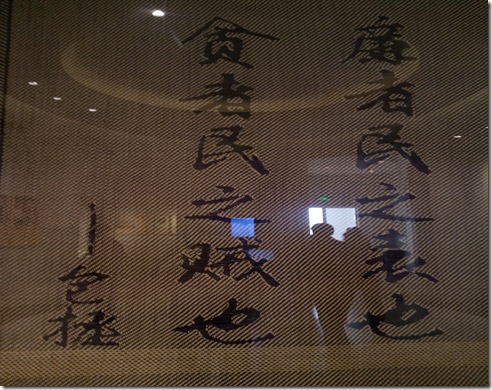 廉者民之表也
贪者民之贼也
—包拯